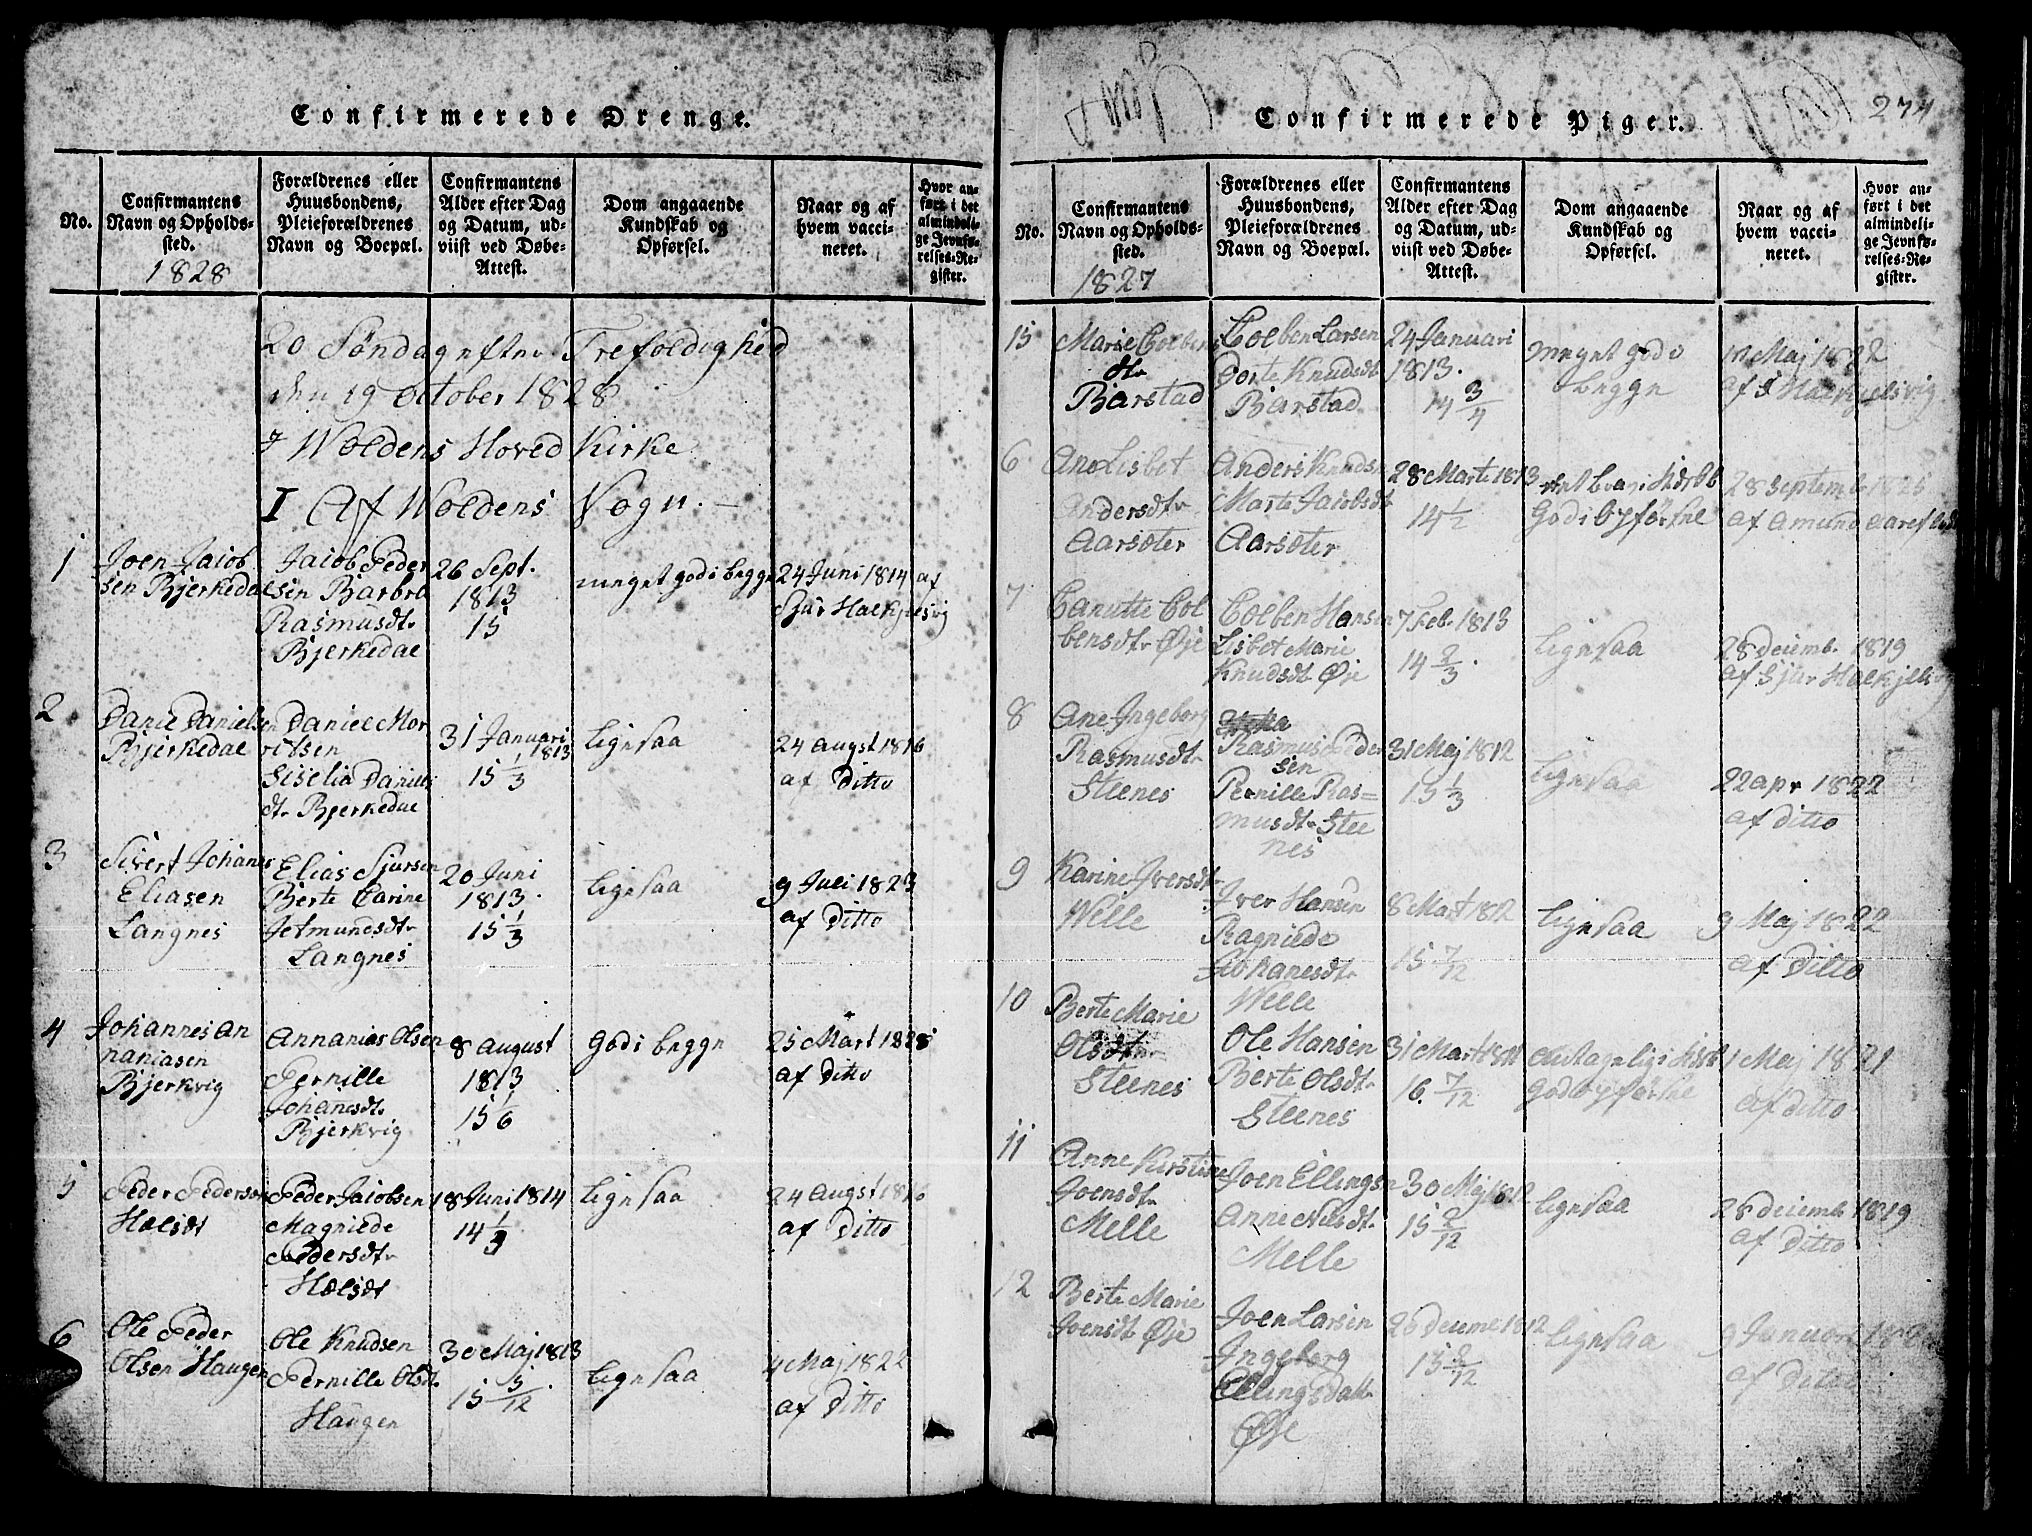 Confirmerede Drenge.
No.
Confirmantens
Navn og Opholds-
sted.
1828
Forældrenes eller
Huusbondens,
Pleieforældrenes
Navn og Boepæl.
Confirmantens
Alder efter Dag
og Datum, ud-
viist ved Døbe-
Attest.
Dom angaaende
Kundskab og
Opførsel.
Naar og af
hvem vacci-
neret.
Hvor an-
ført i det
almindeli-
ge Jevnfø-
relses-Re-
gister.
20 Søndag efter Trefoldighed
den 19 October 1828
i Woldens Hoved Kirke
I Af Woldens Sogn.
1
Joen Jacob
sen Bjerkedal
Jacob Peder
sen Barbra
Rasmusdt.
Bjerkedal
26 Sept.
1813
15
meget god i begge
24 Juni 1814 af
Sjur Halkjelsvig
2
Danel Danielsen
Bjerkedal
Daniel Mor
ritsen
Siselia Daniels
dt. Bjerkedal
31 Januari
1813
15 1/3
ligesaa
24 augst 1816
af Ditto
3
Sivert Johanes
Eliasen
Langnes
Elias Sjursen
Berte Carine
Jetmundsdt.
Langnes
20 Juni
1813.
15 1/3
ligesaa
9 Juli 1823
af Ditto
4
Johannes An
naniasen
Bjerkvig
Annanias Olsen
Pernille
Johanesdt.
Bjerkvig
8 August
1813
15 1/6
God i begge
25 Mart 1828
af Ditto
5
Peder Pedersen
Hølsdt
Peder Jacobsen
Magniede
Pedersdt.
Hølsdt
18 Juni 1814
14 1/3
ligesaa
24 augst 1816
af Ditto
6
Ole Peder
Olsen Haugen
Ole Knudsen
Pernille Olsdt.
Haugen
30 Maj 1813
15 5/12.
ligesaa
4 Maj 1822
af Ditto
Confirmerede Piger.
274
No.
Confirmantens
Navn og Opholds-
sted.
1827
Forældrenes eller
Huusbondens,
Pleieforældrenes
Navn og Boepæl.
Confirmantens
Alder efter Dag
og Datum, ud-
viist ved Døbe-
Attest.
Dom angaaende
Kundskab og
Opførsel.
Naar og af
hvem vacci-
neret.
Hvor an-
ført i det
almindeli-
ge Jevnfø-
relses-Re-
gister.
15
Marie Colbens
dt.
Barstad
Colben Larsen
Dorte Knudsdt
Barstad
24 Januari
1813.
14 3/4
meget god i
begge
Maj 1822
af S Halkjelsvig
6
Ane Lisbet
Andersdt.
Aarsæter
Anders Knuds
Marte Jacobsdt
Aarsæter
28 Marte 1813
14 1/2
God i Opførsel
28 Septemb 1825
af Amund Aareflodt
7
Canutte Col
bensdt. Øje
Colben Hansen
Lisbet Marie
Knudsdt Øje
7 Feb. 1813
14 2/3.
ligesaa
28 Decemb. 1819
af Sjur Halkjelsvig
8
Ane Ingeborg
Rasmusdt.
Steenes
Rasmus Peder
sen
Pernille Ras=
musdt. Stee
nes
31 Maj 1812
15 1/3
ligesaa
22 apr 1822
af Ditto
9
Karine Iversdt.
Welle
Iver Hansen
Ragniede
Johanesdt.
Welle
8 Mart 1812
15 7/12
ligesaa
9 Maj 1822
af Ditto
10
Berte Marie
Olsdt.
Steenes
Ole Hansen
Berte Olsdt.
Steenes
31 Mart 1811
16. 7/12
God Opførsel
1 Maj 1821
af ditto
11
Anne Kirstine
Joensdt.
Melle
Joen Ellingsen
Anne Nilsdt.
Melle
30 Maj 1812
15 2/12
ligesaa
28 Decemb 1819
af Ditto
12
Berte Marie
Joensdt Øje
Joen Larsen
Ingeborg
Ellingsdatt.
Øje
26 Decme 1812
15 2/12
ligesaa
9 Januar
af Ditto